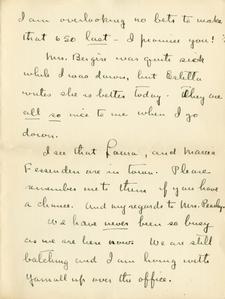 I am overlooking no bets to make
that 650 last - I promise you!
Mrs. Bergin was quite sick
while I was down, but Estella
writes she is better today. They are
all so nice to me when I go
down.
I see that Laura, and Marcia
Fessenden are in town. Please
remember me to them if you have
a chance. And my regards to Mrs.
We have never been so busy
as we are here now. We are still
batching and I am living with
Yarnall up over the office.